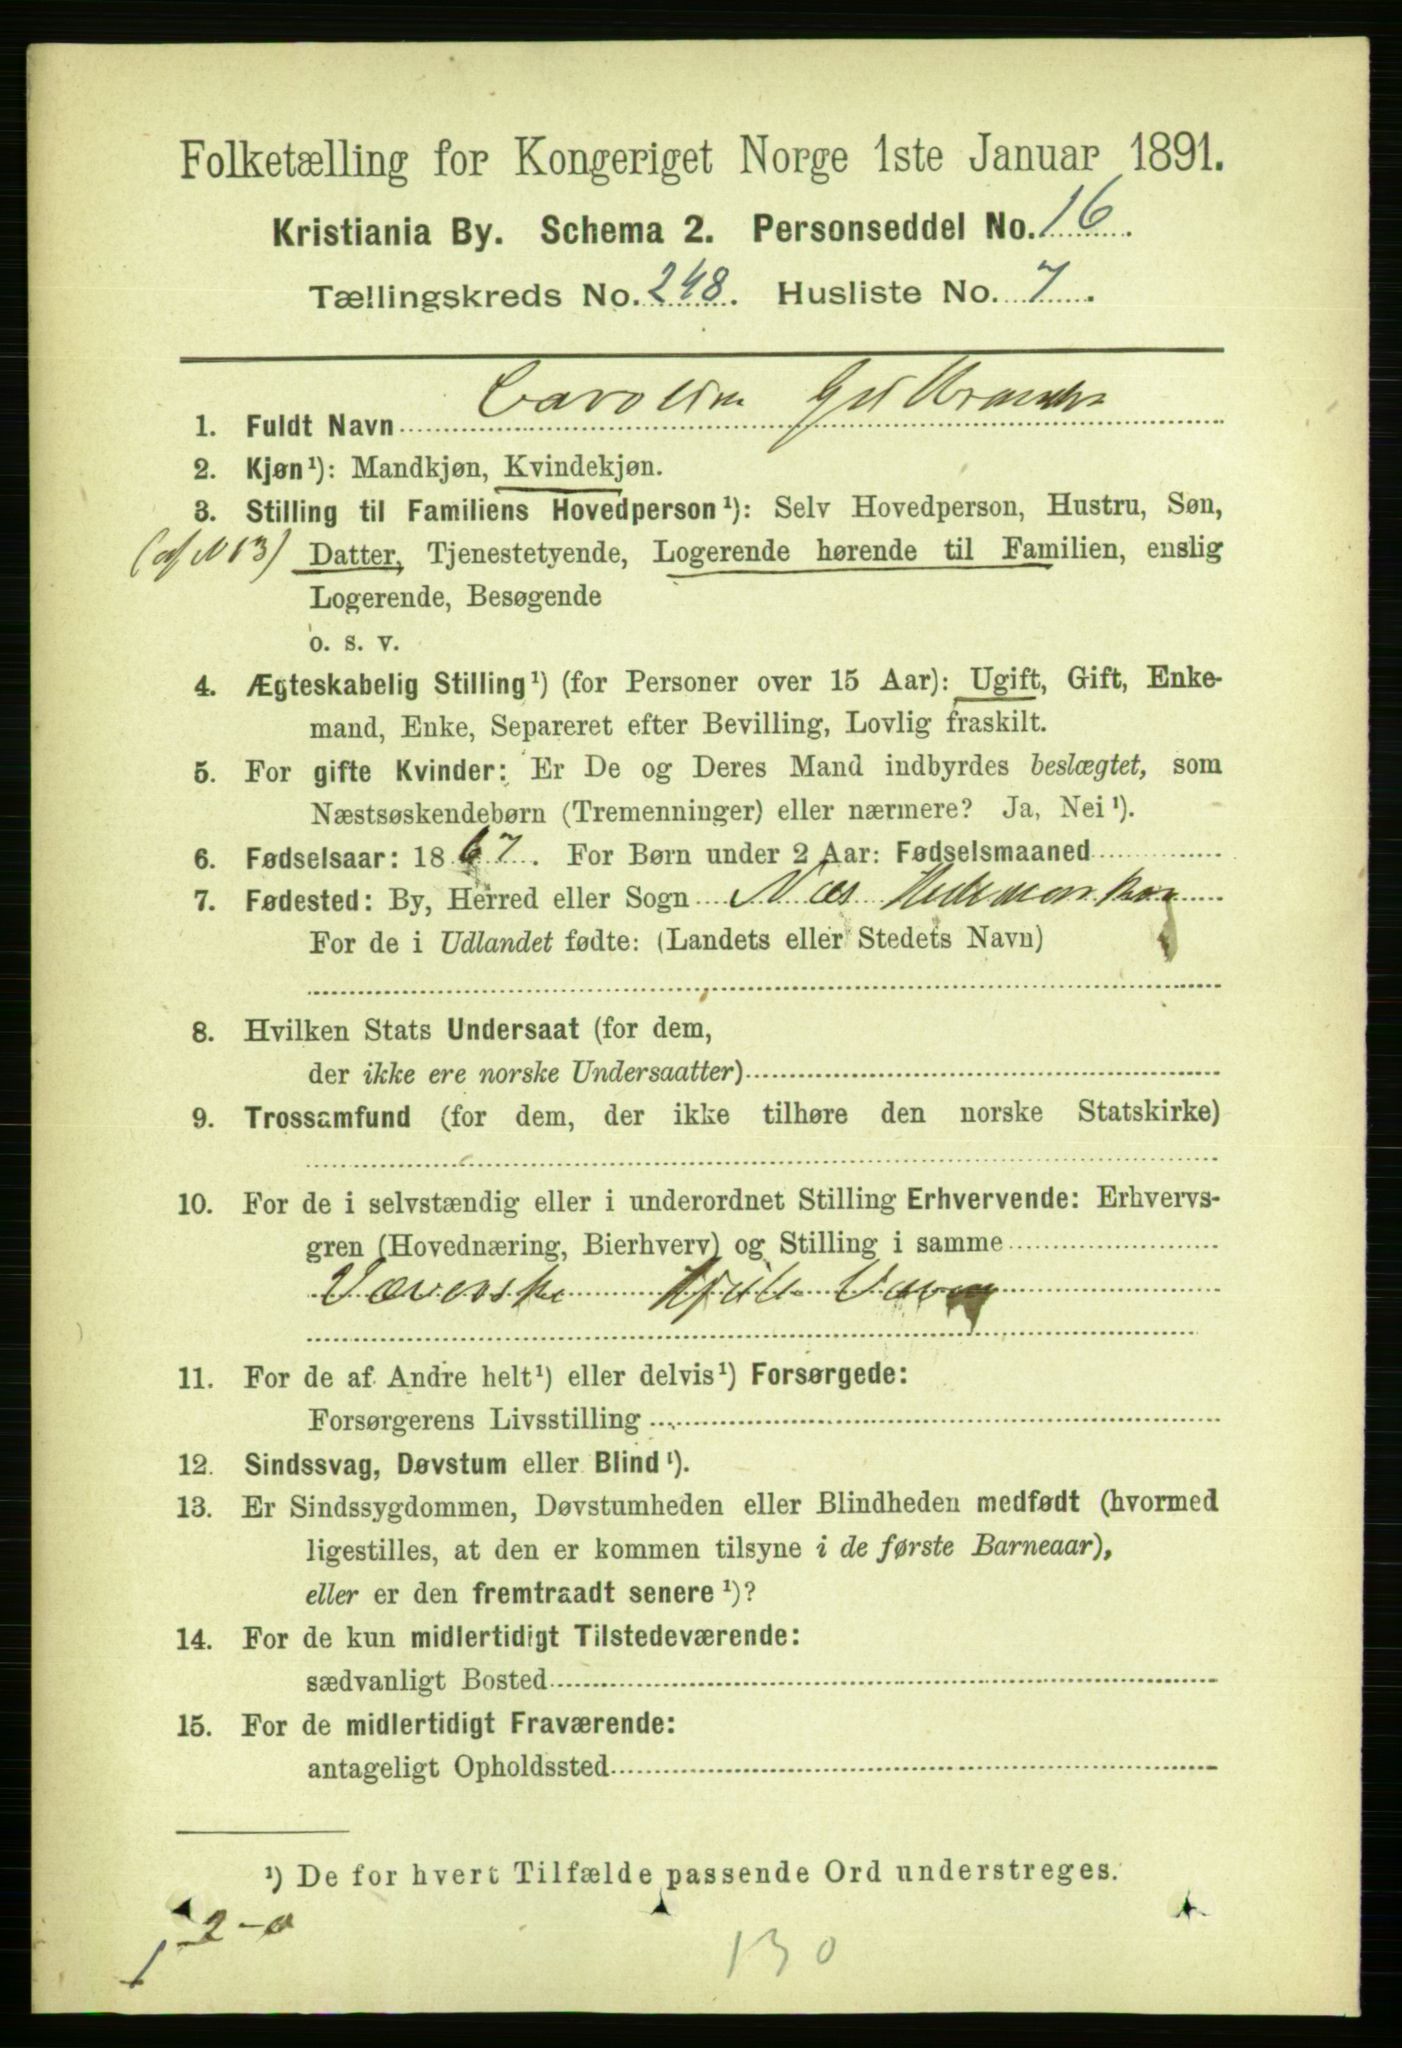 Folketælling for Kongeriget Norge 1ste Januar 1891.
Kristiania By. Schema 2. Personseddel No. 16.
Tællingskreds No. 248. Husliste No. 7.
1. Fuldt Navn Caroline
2. Kjøn¹): Mandkjøn, Kvindekjøn.
3. Stilling til Familiens Hovedperson¹): Selv Hovedperson, Hustru, Søn,
(af N 13) Datter, Tjenestetyende, Logerende hørende til Familien, enslig
Logerende, Besøgende
o. s. v.
4. Ægteskabelig Stilling¹) (for Personer over 15 Aar): Ugift, Gift, Enke-
mand, Enke, Separeret efter Bevilling, Lovlig fraskilt.
5. For gifte Kvinder: Er De og Deres Mand indbyrdes beslægtet, som
Næstsøskendebørn (Tremenninger) eller nærmere? Ja, Nei¹).
6. Fødselsaar: 1867. For Børn under 2 Aar: Fødselsmaaned
7. Fødested: By, Herred eller Sogn Næs Hedemarken
For de i Udlandet fødte: (Landets eller Stedets Navn)
8. Hvilken Stats Undersaat (for dem,
der ikke ere norske Undersaatter)
9. Trossamfund (for dem, der ikke tilhøre den norske Statskirke)
10. For de i selvstændig eller i underordnet Stilling Erhvervende: Erhvervs-
gren (Hovednæring, Bierhverv) og Stilling i samme
Væverske
11. For de af Andre helt¹) eller delvis¹) Forsørgede:
Forsørgerens Livsstilling
12. Sindssvag, Døvstum eller Blind¹).
13. Er Sindssygdommen, Døvstumheden eller Blindheden medfødt (hvormed
ligestilles, at den er kommen tilsyne i de første Barneaar),
eller er den fremtraadt senere¹)?
14. For de kun midlertidigt Tilstedeværende:
sædvanligt Bosted
15. For de midlertidigt Fraværende:
antageligt Opholdssted
¹) De for hvert Tilfælde passende Ord understreges.
2-0
1
130